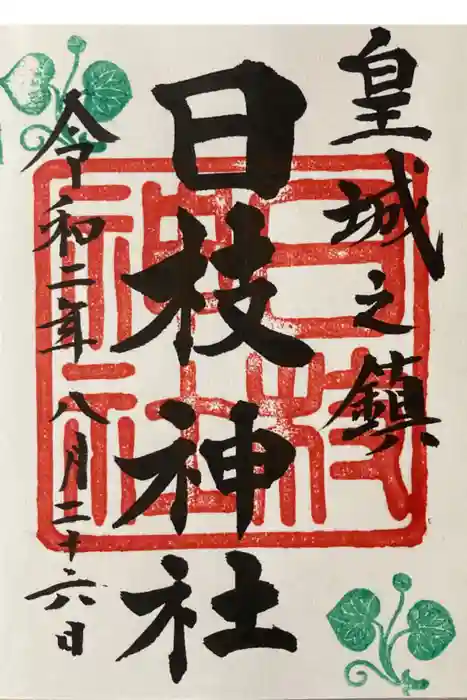 皇城之鎮
日枝神社
令和二年八月二十六日
日枝神社